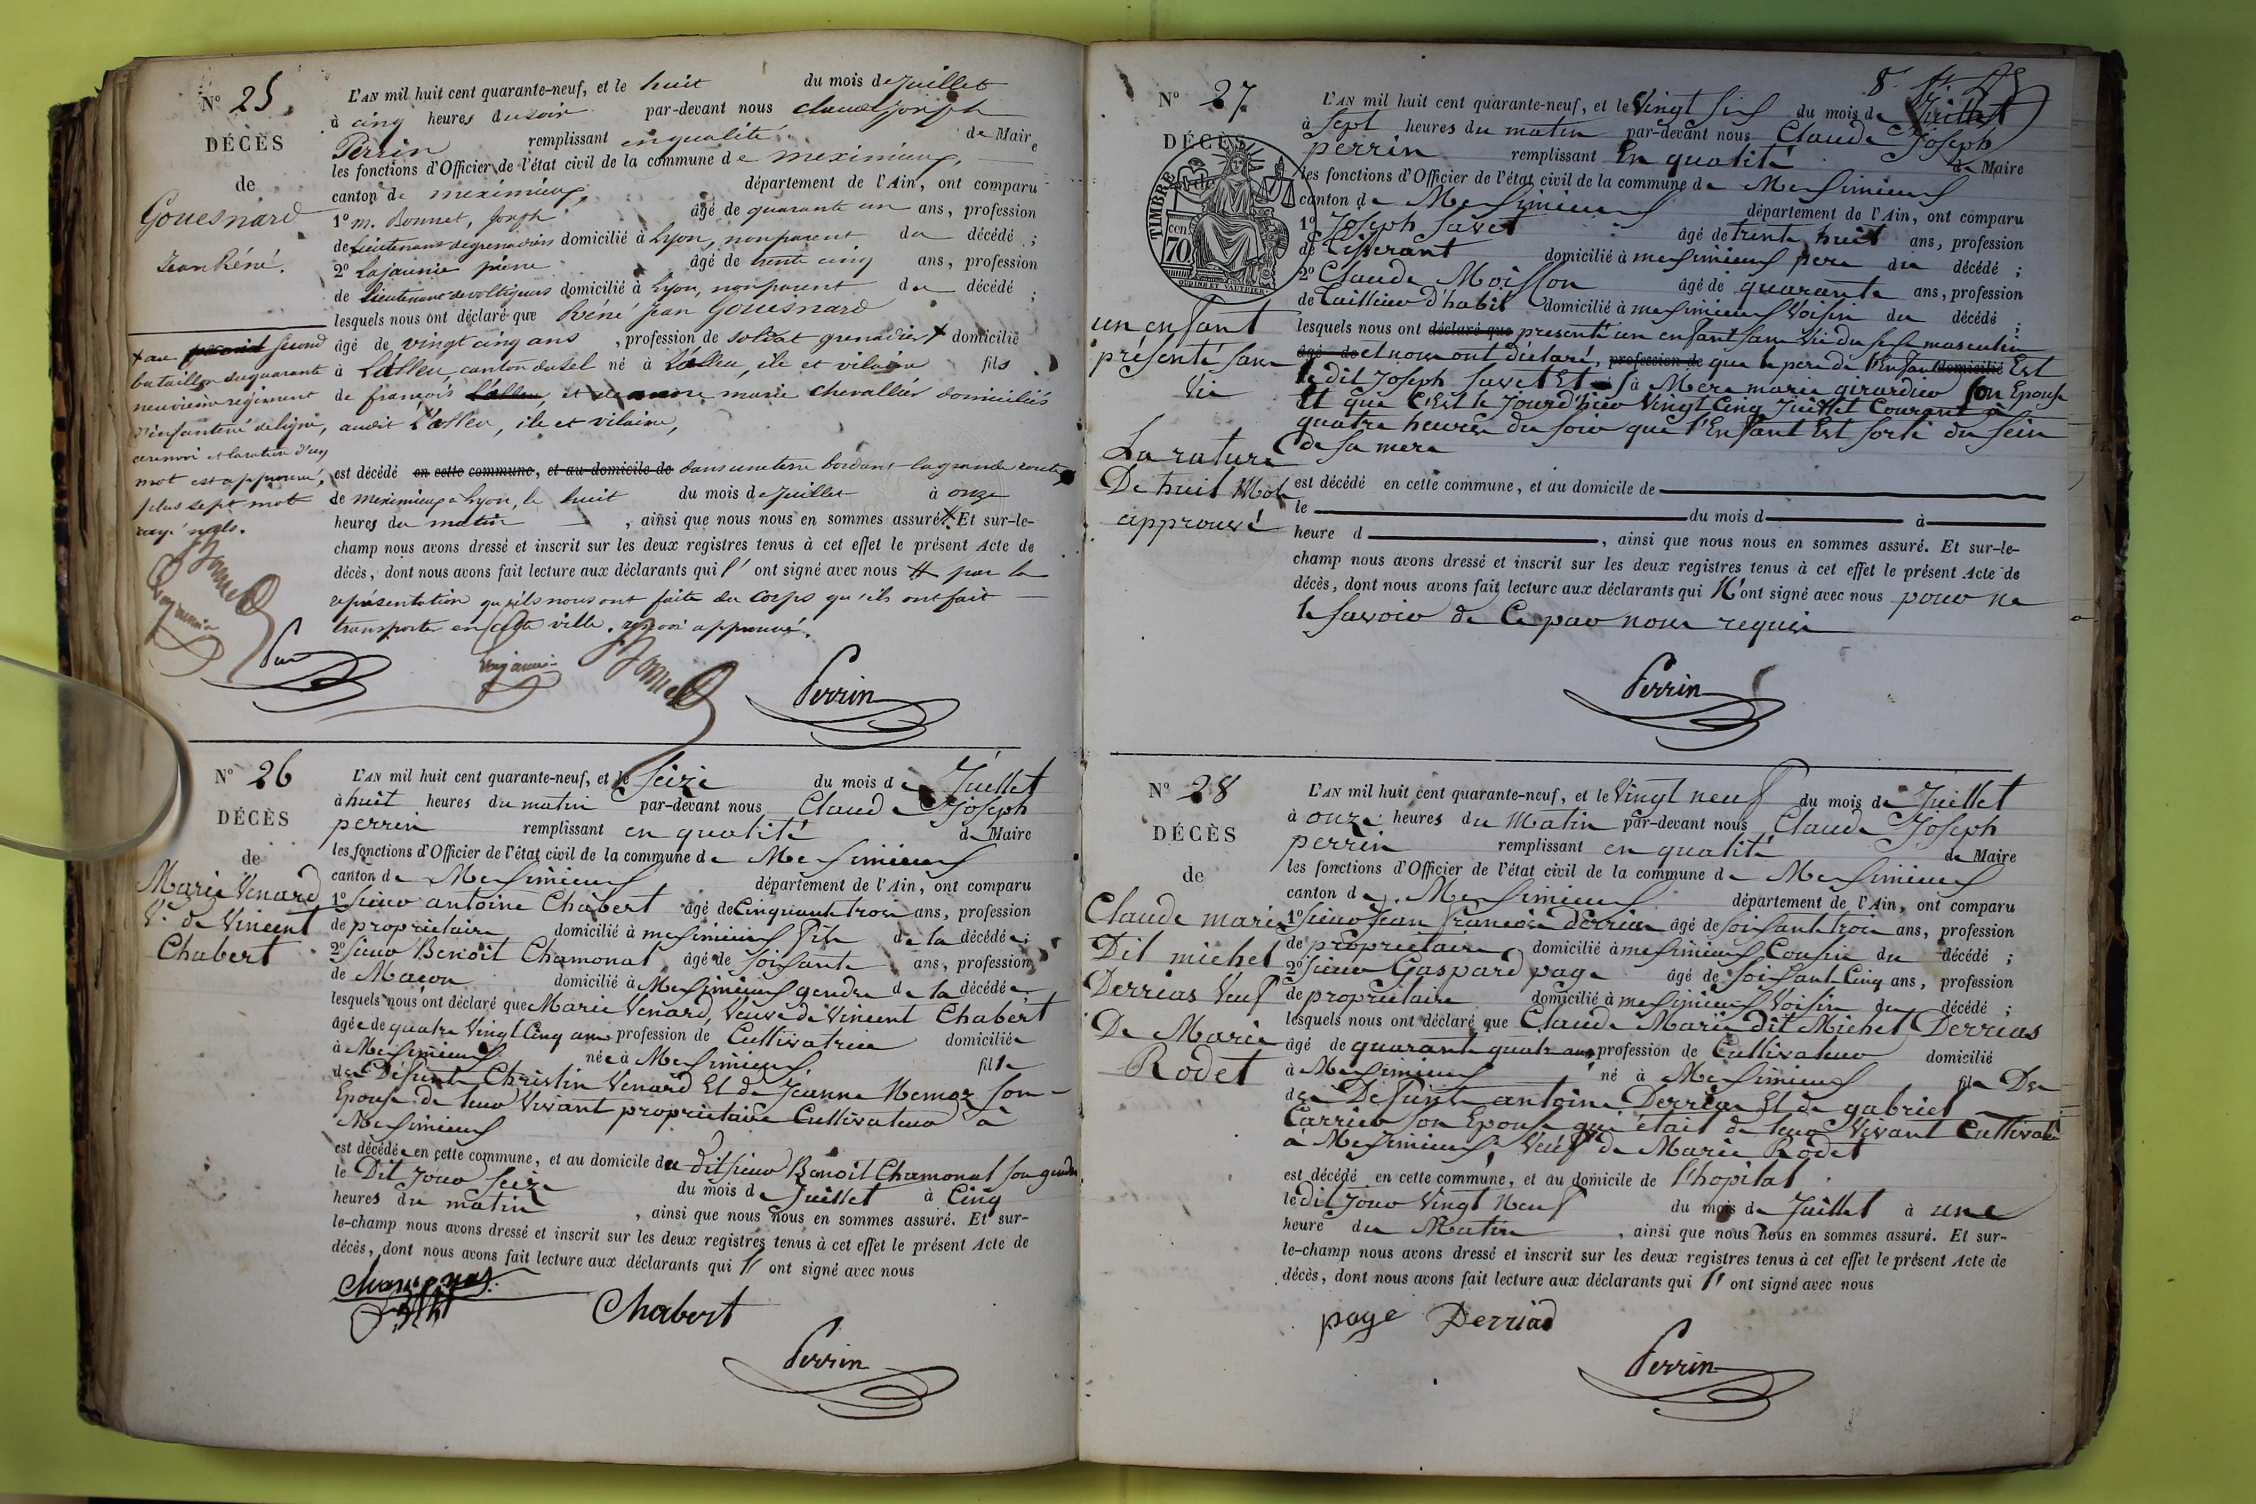 N° 25
DÉCÈS
de
Gouesnard
Jean Réné.
L'AN mil huit cent quarante-neuf, et le huit du mois de Juillet
à cinq heures du soir par-devant nous Claude Joseph
Perrin remplissant en qualité de Maire
les fonctions d'Officier de l'état civil de la commune de meximieux,
canton de meximieux, département de l'Ain, ont comparu
1° m. Bonnet, Joseph âgé de quarante un ans, profession
de Lieutenant de grenadiers domicilié à Lyon, non parent du décédé ;
2° Lajaunie pierre âgé de trente cinq ans, profession
de Lieutenant de voltigeurs domicilié à Lyon, non parent du décédé ;
lesquels nous ont déclaré que Réné Jean Gouesnard
âgé de vingt cinq ans, profession de soldat grenadier + domicilié
à canton du sel né à ile et vilaine fils
de françois et de marie chevallier domiciliés
audit ile et vilaine,
est décédé en cette commune, et au domicile de dans une terre bordant la grande route
de meximieux à Lyon, le huit du mois de Juillet à onze
heures du matin, ainsi que nous nous en sommes assuré # Et sur-le-
champ nous avons dressé et inscrit sur les deux registres tenus à cet effet le présent Acte de
décès, dont nous avons fait lecture aux déclarants qui l' ont signé avec nous # par la
représentation qu'ils nous ont faite du corps qu'ils ont fait
transporter en cette ville. renvoi approuvé.
+ au second second
bataillon du quarante
neuvième régiment
d'infanterie de ligne,
ce renvoi et la rature d'un
mot est approuvé,
plus sept mot
rayé nuls.
Bonnet
Lajaunie
Lajaunie
Bonnet
Perrin
N° 26
DÉCÈS
de
Marie Venard
Ve de Vincent
Chabert
L'AN mil huit cent quarante-neuf, et le Seize du mois de Juillet
à huit heures du matin par-devant nous Claude Joseph
perrin remplissant en qualité de Maire
les fonctions d'Officier de l'état civil de la commune de Meximieux
canton de Meximieux département de l'Ain, ont comparu
1° Sieur antoine Chabert âgé de Cinquante trois ans, profession
de proprietaire domicilié à meximieux fils de la décédée ;
2° Sieur Benoit Chamonal âgé de Soixante ans, profession
de Maçon domicilié à Meximieux gendre de la décédée
lesquels nous ont déclaré que Marie Venard, Veuve de Vincent Chabert
âgée de quatre Vingt Cinq ans profession de Cultivatrice domiciliée
à Meximieux née à Meximieux fille
de Défunts Christin Venard Et de Jeanne Hemoz Son
Epouse de leur Vivant proprietaire Cultivateur à
Meximieux
est décédée en cette commune, et au domicile du dit sieur Benoit Chamonal son gendre
le Dit Jour Seize du mois de Juillet à Cinq
heures du matin, ainsi que nous nous en sommes assuré. Et sur-
le-champ nous avons dressé et inscrit sur les deux registres tenus à cet effet le présent Acte de
décès, dont nous avons fait lecture aux déclarants qui l' ont signé avec nous
Chabert
Perrin
N° 27
DÉCÈS
de
TIMBRE
cen
70
un enfant
présenté sans
Vie
La rature
De huit Mots
approuvé
L'AN mil huit cent quarante-neuf, et le Vingt Six du mois de Juillet
à Sept heures du matin par-devant nous Claude Joseph
perrin remplissant En qualité de Maire
les fonctions d'Officier de l'état civil de la commune de Meximieux
canton de Meximieux département de l'Ain, ont comparu
1° Joseph Savet âgé de trente huit ans, profession
de Tisserant domicilié à meximieux pere du décédé ;
2° Claude Moisson âgé de quarante ans, profession
de Tailleur d'habit domicilié à meximieux Voisin du décédé ;
lesquels nous ont déclaré que presenté un enfant sans Vie du sexe masculin
âgé de et nous ont déclaré, profession de que le pere de l'Enfant domicilié Est
le dit Joseph Savet Et Sa Mere marie girardier Son Epouse
Et que C'Est le Jourd'hier Vingt Cinq Juillet Courant à
quatre heures du soir que l'Enfant Est sorti du Sein
de Sa mere
est décédé en cette commune, et au domicile de
le du mois d à
heure d, ainsi que nous nous en sommes assuré. Et sur-le-
champ nous avons dressé et inscrit sur les deux registres tenus à cet effet le présent Acte de
décès, dont nous avons fait lecture aux déclarants qui N'ont signé avec nous pour ne
le savoir de Ce par nous requis
Perrin
N° 28
DÉCÈS
de
Claude marie
Dit michel
Derrias Veuf
De Marie
Rodet
L'AN mil huit cent quarante-neuf, et le Vingt neuf du mois de Juillet
à onze heures du Matin par-devant nous Claude Joseph
perrin remplissant en qualité de Maire
les fonctions d'Officier de l'état civil de la commune de Meximieux
canton de Meximieux département de l'Ain, ont comparu
1° Sieur Jean francois Derrias âgé de soixante trois ans, profession
de proprietaire domicilié à meximieux Cousin du décédé ;
2° Sieur Gaspard page âgé de Soixante Cinq ans, profession
de proprietaire domicilié à meximieux Voisin du décédé ;
lesquels nous ont déclaré que Claude Marie dit Michel Derrias
âgé de quarante quatre ans profession de Cultivateur domicilié
à Meximieux né à Meximieux fils De
de Defunts antoine Derrias Et de gabriel
Carrier Son Epouse qui était de leur Vivant Cultivateur
à Meximieux, Veuf de Marie Rodet
est décédé en cette commune, et au domicile de l'hopital
le dit Jour Vingt Neuf du mois de Juillet à une
heure du Matin, ainsi que nous nous en sommes assuré. Et sur-
le-champ nous avons dressé et inscrit sur les deux registres tenus à cet effet le présent Acte de
décès, dont nous avons fait lecture aux déclarants qui l' ont signé avec nous
page Derriad
Perrin